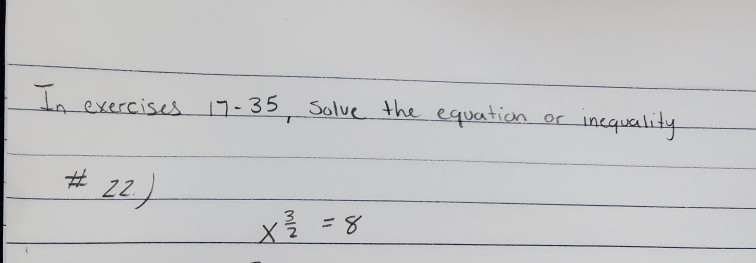 In exercises 17-35, Solve the equation or inequality
# 22.)
x^{3/2} = 8